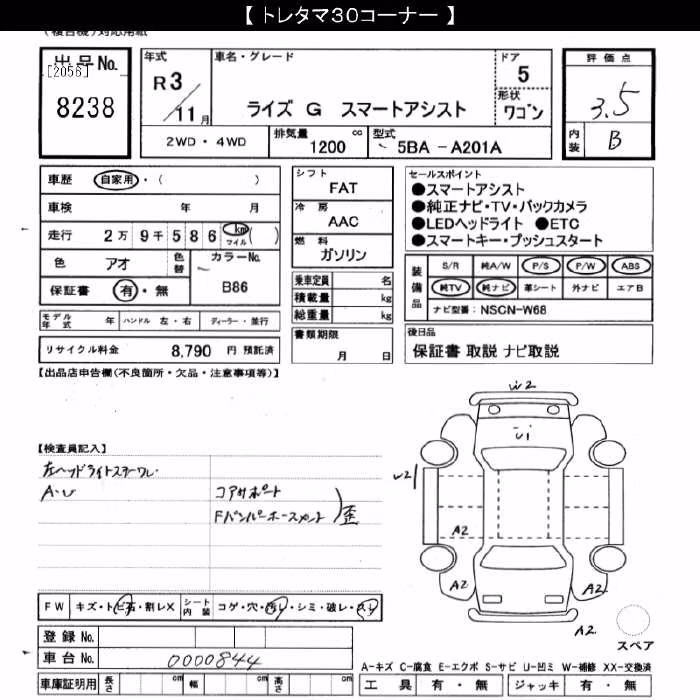 【 トレタマ30コーナー 】
(複合機)対応用紙
出品No. [2056] 8238
年式 R3/11月
車名・グレード ライズ G スマートアシスト
ドア 5
形状 ワゴン
評価点 3.5
内装 B
2WD・4WD 排気量 1200 cc 型式 5BA - A201A
車歴 自家用・( )
車検 年 月
走行 2万 9千 5 8 6 km マイル ( )
色 アオ 色替 カラーNo. B86
保証書 有・無
モデル年式 年 ハンドル 左・右 ディーラー・並行
リサイクル料金 8,790 円 預託済
シフト FAT
冷房 AAC
燃料 ガソリン
乗車定員 名
積載量 kg
総重量 kg
書類期限
月 日
セールスポイント
●スマートアシスト
●純正ナビ・TV・バックカメラ
●LEDヘッドライト ●ETC
●スマートキー・プッシュスタート
装備品 S/R 純A/W P/S P/W ABS
純TV 純ナビ 革シート 外ナビ エアB
ナビ型番: NSCN-W68
後日品
保証書 取説 ナビ取説
【出品店申告欄(不良箇所・欠品・注意事項等)】
【検査員記入】
左ヘッドライトステーワレ
A・U
コアサポート
Fバンパーホースメント
歪
W2
U1
W21
A2
A2
A2
A2
FW キズ・トビ石・割レX シート内装 コゲ・穴・汚レ・シミ・破レ・スレ
登録No.
車台No. 0000844
車庫証明用 長さ cm 幅 cm 高さ cm
スペア
A-キズ C-腐食 E-エクボ S-サビ U-凹ミ W-補修 XX-交換済
工具 有・無 ジャッキ 有・無